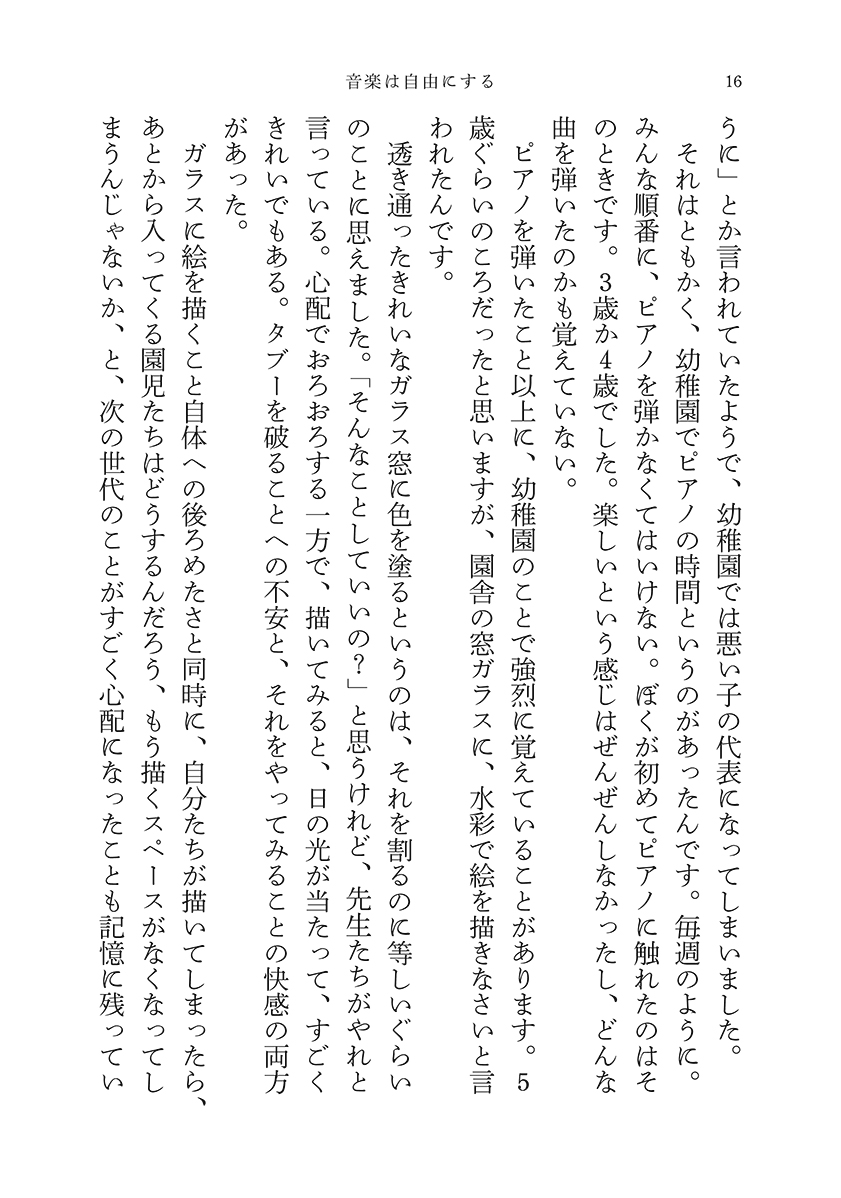 音楽は自由にする
16
うに」とか言われていたようで、幼稚園では悪い子の代表になってしまいました。
それはともかく、幼稚園でピアノの時間というのがあったんです。毎週のように。
みんな順番に、ピアノを弾かなくてはいけない。ぼくが初めてピアノに触れたのはそ
のときです。3歳か4歳でした。楽しいという感じはぜんぜんしなかったし、どんな
曲を弾いたのかも覚えていない。
ピアノを弾いたこと以上に、幼稚園のことで強烈に覚えていることがあります。5
歳ぐらいのころだったと思いますが、園舎の窓ガラスに、水彩で絵を描きなさいと言
われたんです。
透き通ったきれいなガラス窓に色を塗るというのは、それを割るのに等しいぐらい
のことに思えました。「そんなことしていいの？」と思うけれど、先生たちがやれと
言っている。心配でおろおろする一方で、描いてみると、日の光が当たって、すごく
きれいでもある。タブーを破ることへの不安と、それをやってみることの快感の両方
があった。
ガラスに絵を描くこと自体への後ろめたさと同時に、自分たちが描いてしまったら、
あとから入ってくる園児たちはどうするんだろう、もう描くスペースがなくなってし
まうんじゃないか、と、次の世代のことがすごく心配になったことも記憶に残ってい